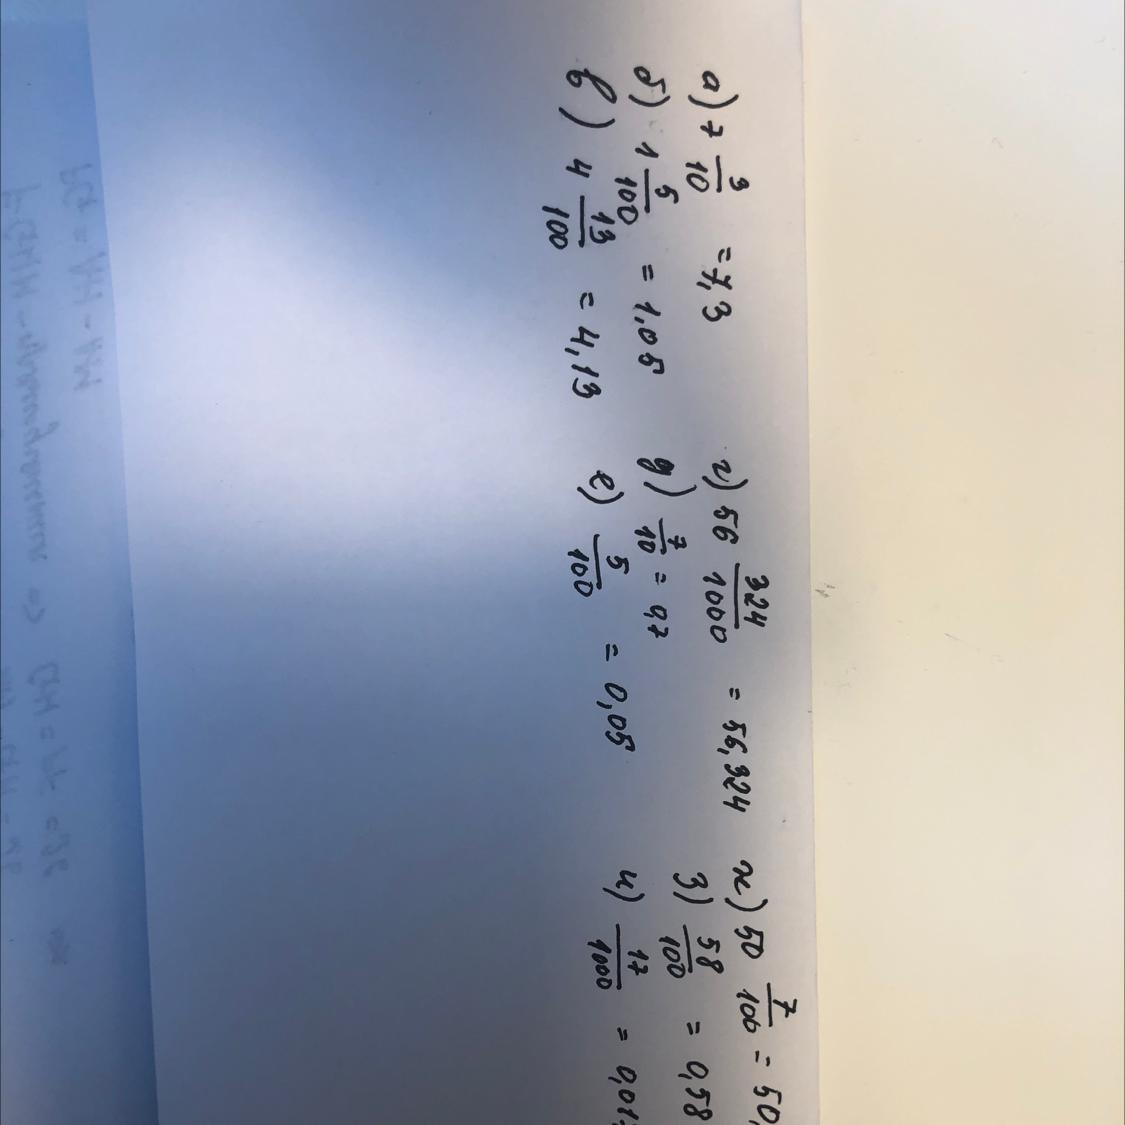 а) 7 3/10 = 7,3
б) 1 5/100 = 1,05
в) 4 13/100 = 4,13
г) 56 324/1000 = 56,324
д) 7/10 = 0,7
е) 5/100 = 0,05
ж) 50 7/100 = 50,
з) 58/100 = 0,58
и) 17/1000 = 0,01